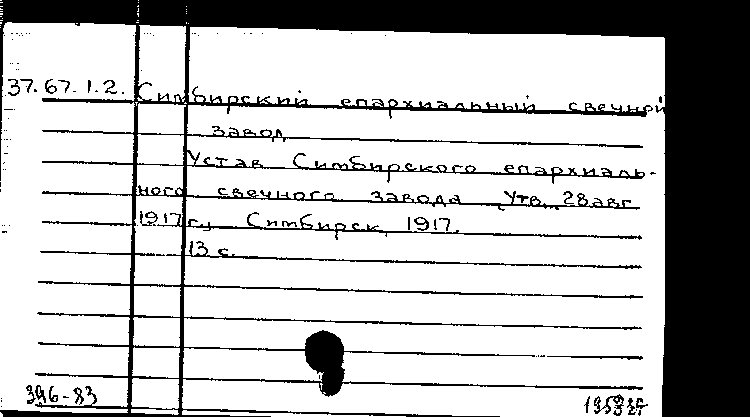 37.67.1.2. Симбирский епархиальный свечной
завод
Устав Симбирского епархиаль-
ного свечного завода Утв. 28 авг
1917 г., Симбирск, 1917.
13 с.
396-83